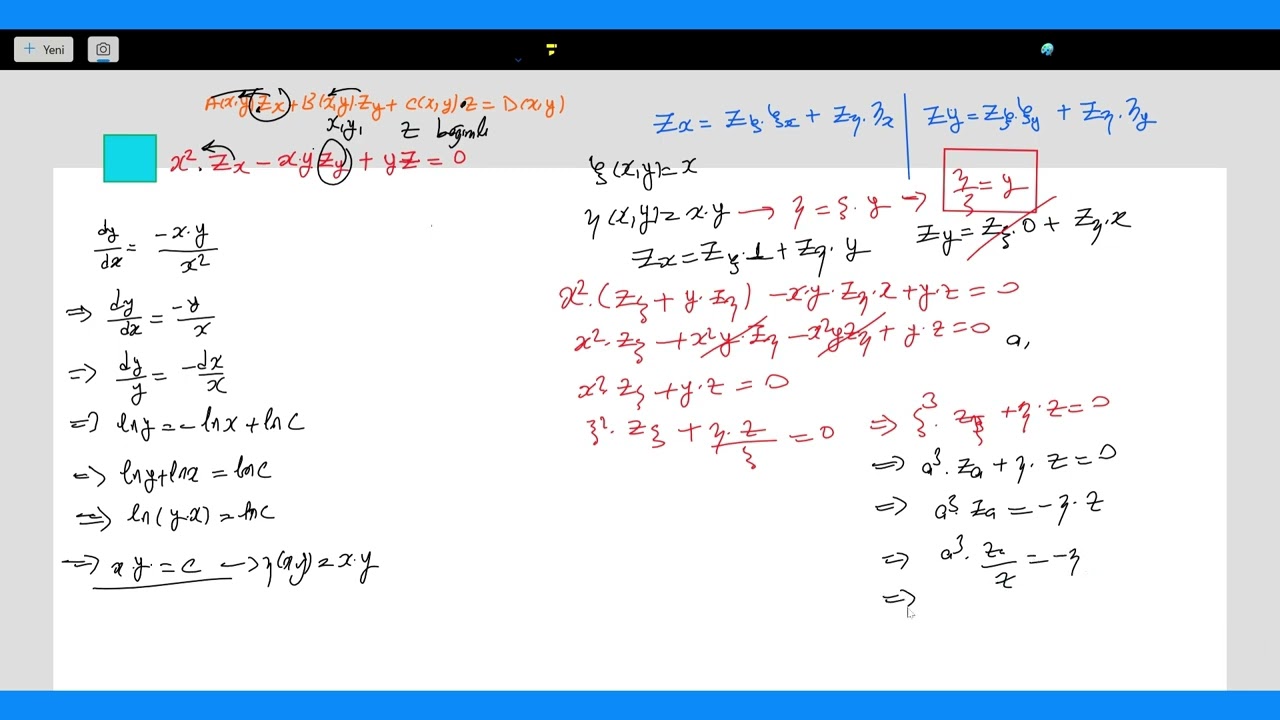 Yeni
A(x,y)Zx+B(x,y).Zy+C(x,y).Z=D(x,y)
x,y, Z
x².Zx-x.yZy+yZ=0
dy/dx=-x.y/x²
=> dy/dx=-y/x
=> dy/y=-dx/x
=> lny=-lnx+lnC
=> lny+lnx=lnC
=> ln(y.x)=lnC
=> x.y=C -> η(x,y)=x.y
Zx=Zξ.ξx+Zη.ηx | Zy=Zξ.ξy+Zη.ηy
ξ(x,y)=x
η(x,y)=x.y -> η=ξ.y -> η/ξ=y
Zx=Zξ.1+Zη.y Zy=Zξ.0+Zη.x
x².(Zξ+y.Zη)-x.y.Zη.x+y.z=0
x².Zξ+x²y.Zη-x²yZη+y.z=0 a,
x².Zξ+y.z=0
ξ².Zξ+η.z/ξ=0 => ξ³.Zξ+η.z=0
=> a³.Za+η.z=0
=> a³.Za=-η.z
=> a³.Za/z=-η
=>